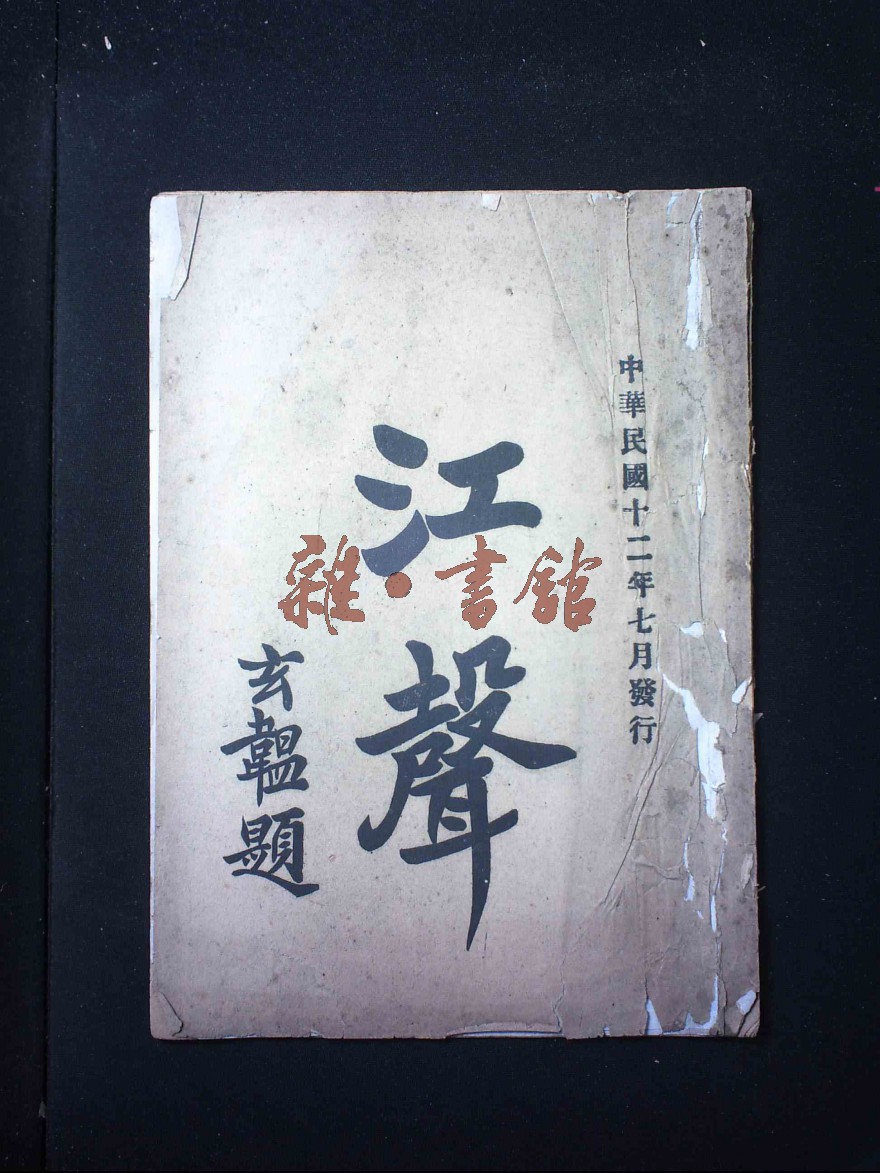 中華民國十二年七月發行
江聲
玄韞題
雜·書館